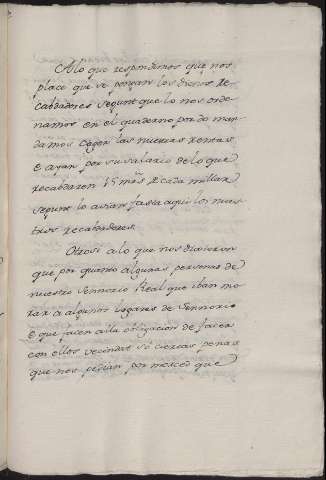 A lo que respondemos que nos
place que se pongan los dichos Re-
cabdadores segunt que lo nos orde-
namos en el quaderno por do man-
damos coger las nuestras rentas
e ayan por su salario de lo que
recabdaren 15 mrs de cada millar
segunt lo avian fasta aqui los nues-
tros recabdadores.
Otrosi a lo que nos dixieron
que por quanto algunas personas de
nuestro Sennorio Real que iban mo-
rar a algunos logares de Sennorio
e que facen alla obligacion de facer
con ellos vecindat so ciertas penas
que nos pedian por merced que